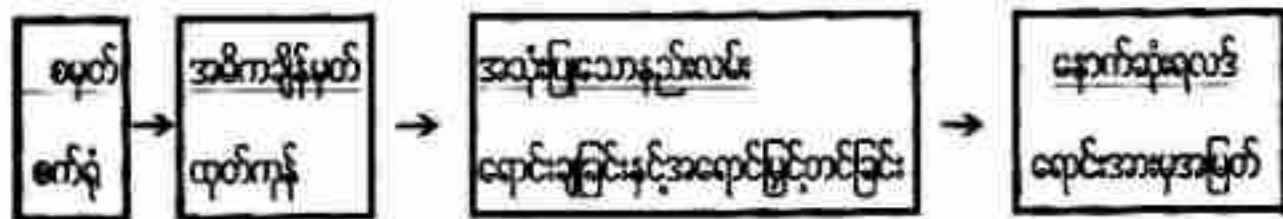 စမှတ်
စက်ရုံ
အဓိကချိန်မှတ်
ထုတ်ကုန်
အသုံးပြုသောနည်းလမ်း
ရောင်းချခြင်းနှင့်အရောင်မြှင့်တင်ခြင်း
နောက်ဆုံးရလဒ်
ရောင်းအားမှအမြတ်